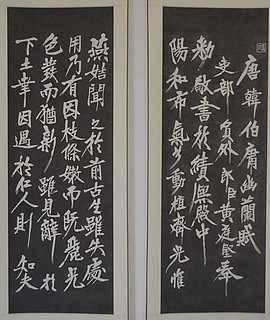 唐韓伯庸幽蘭賦
吏部員外郎臣黃庭堅奉
勅敬書於績熙殿中
陽和布氣兮動植齊光惟
燕姞聞之於前古生雖失處
用乃有因枝條嫩而既麗光
色發而猶新雖見辭於
下土幸因遇於仁人則知夫